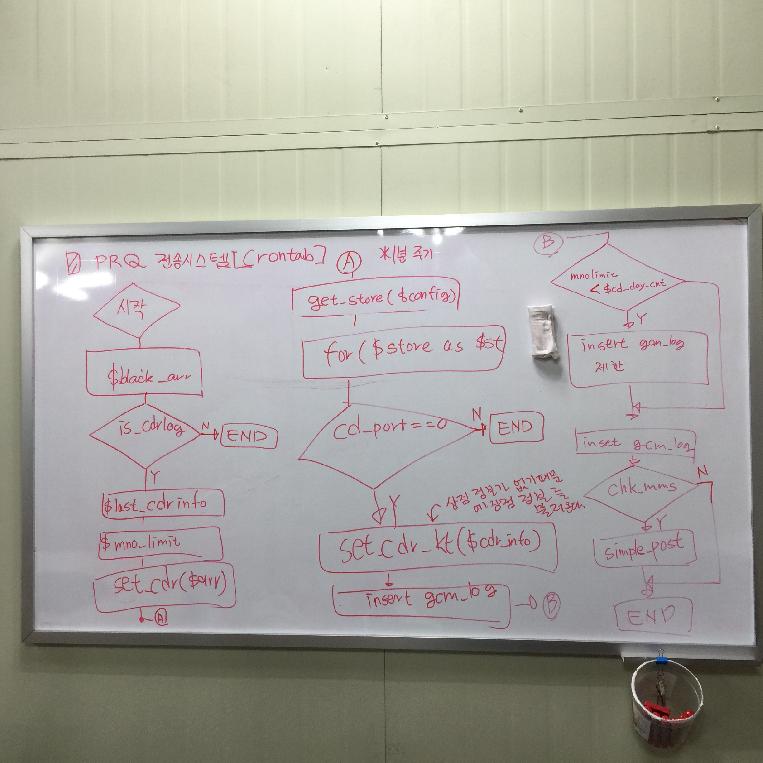 PRQ 전송시스템[Crontab]
시작
$black_arr
is_cdrlog
N
END
Y
$last_cdr info
$mno_limit
set_cdr($arr)
A
A
※1분 주기
get_store($config)
for($store as $st
cd_port==0
N
END
Y
상점 정보가 없기때문
에 상점 정보를
불러온다.
set_cdr_kt($cdr_info)
insert gcm_log
B
B
mnolimit
< $cd_day_cnt
Y
insert gcm_log
제한
inset gcm_log
chk_mms
N
Y
simple_post
END